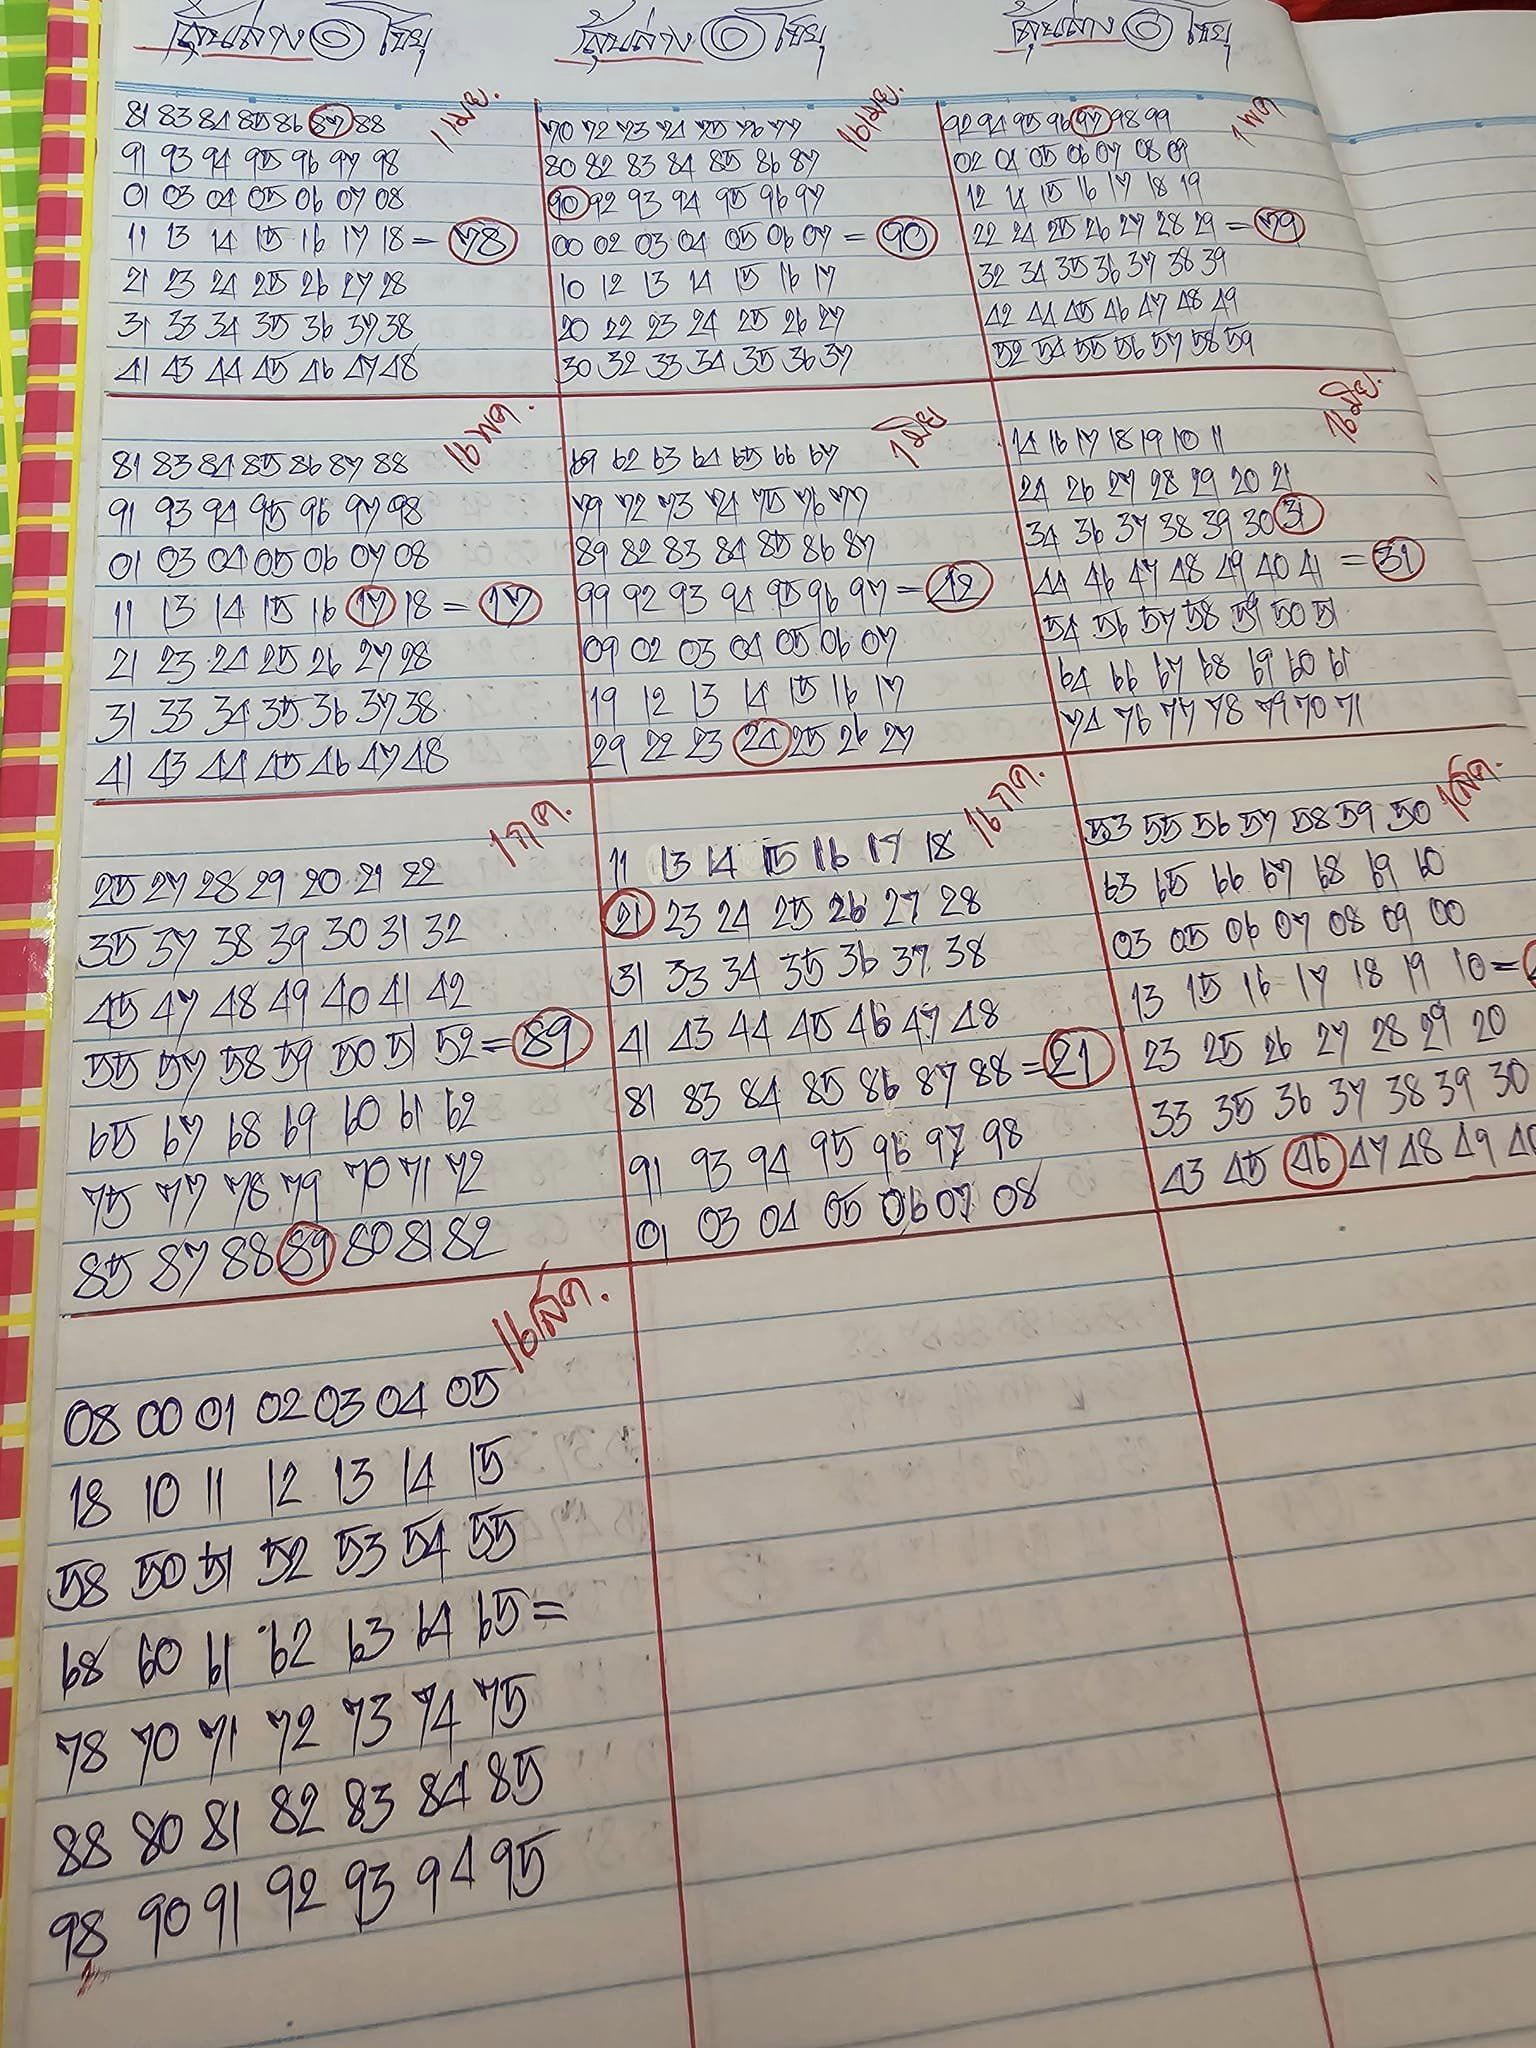 ลุ้นล่าง ๐ โชยุ
ลุ้นล่าง ๐ โชยุ
ลุ้นล่าง ๐ โชยุ
1 เมย.
81 83 84 85 86 87 88
91 93 94 95 96 97 98
01 03 04 05 06 07 08
11 13 14 15 16 17 18 = 78
21 23 24 25 26 27 28
31 33 34 35 36 37 38
41 43 44 45 46 47 48
16 เมย.
70 72 73 74 75 76 77
80 82 83 84 85 86 87
90 92 93 94 95 96 97
00 02 03 04 05 06 07 = 90
10 12 13 14 15 16 17
20 22 23 24 25 26 27
30 32 33 34 35 36 37
1 พค
92 94 95 96 97 98 99
02 04 05 06 07 08 09
12 14 15 16 17 18 19
22 24 25 26 27 28 29 = 79
32 34 35 36 37 38 39
42 44 45 46 47 48 49
52 54 55 56 57 58 59
16 พค.
81 83 84 85 86 87 88
91 93 94 95 96 97 98
01 03 04 05 06 07 08
11 13 14 15 16 17 18 = 17
21 23 24 25 26 27 28
31 33 34 35 36 37 38
41 43 44 45 46 47 48
1 มิย
69 62 63 64 65 66 67
79 72 73 74 75 76 77
89 82 83 84 85 86 87
99 92 93 94 95 96 97 = 42
09 02 03 04 05 06 07
19 12 13 14 15 16 17
29 22 23 24 25 26 27
16 มิย.
14 16 17 18 19 10 11
24 26 27 28 29 20 21
34 36 37 38 39 30 31
44 46 47 48 49 40 41 = 31
54 56 57 58 59 50 51
64 66 67 68 69 60 61
74 76 77 78 79 70 71
1 กค.
25 27 28 29 20 21 22
35 37 38 39 30 31 32
45 47 48 49 40 41 42
55 57 58 59 50 51 52 = 89
65 67 68 69 60 61 62
75 77 78 79 70 71 72
85 87 88 89 80 81 82
16 กค.
11 13 14 15 16 17 18
21 23 24 25 26 27 28
31 33 34 35 36 37 38
41 43 44 45 46 47 48
81 83 84 85 86 87 88 = 21
91 93 94 95 96 97 98
01 03 04 05 06 07 08
1 สค.
53 55 56 57 58 59 50
63 65 66 67 68 69 60
03 05 06 07 08 09 00
13 15 16 17 18 19 10 =
23 25 26 27 28 29 20
33 35 36 37 38 39 30
43 45 46 47 48 49 40
16 สค.
08 00 01 02 03 04 05
18 10 11 12 13 14 15
58 50 51 52 53 54 55
68 60 61 62 63 64 65 =
78 70 71 72 73 74 75
88 80 81 82 83 84 85
98 90 91 92 93 94 95